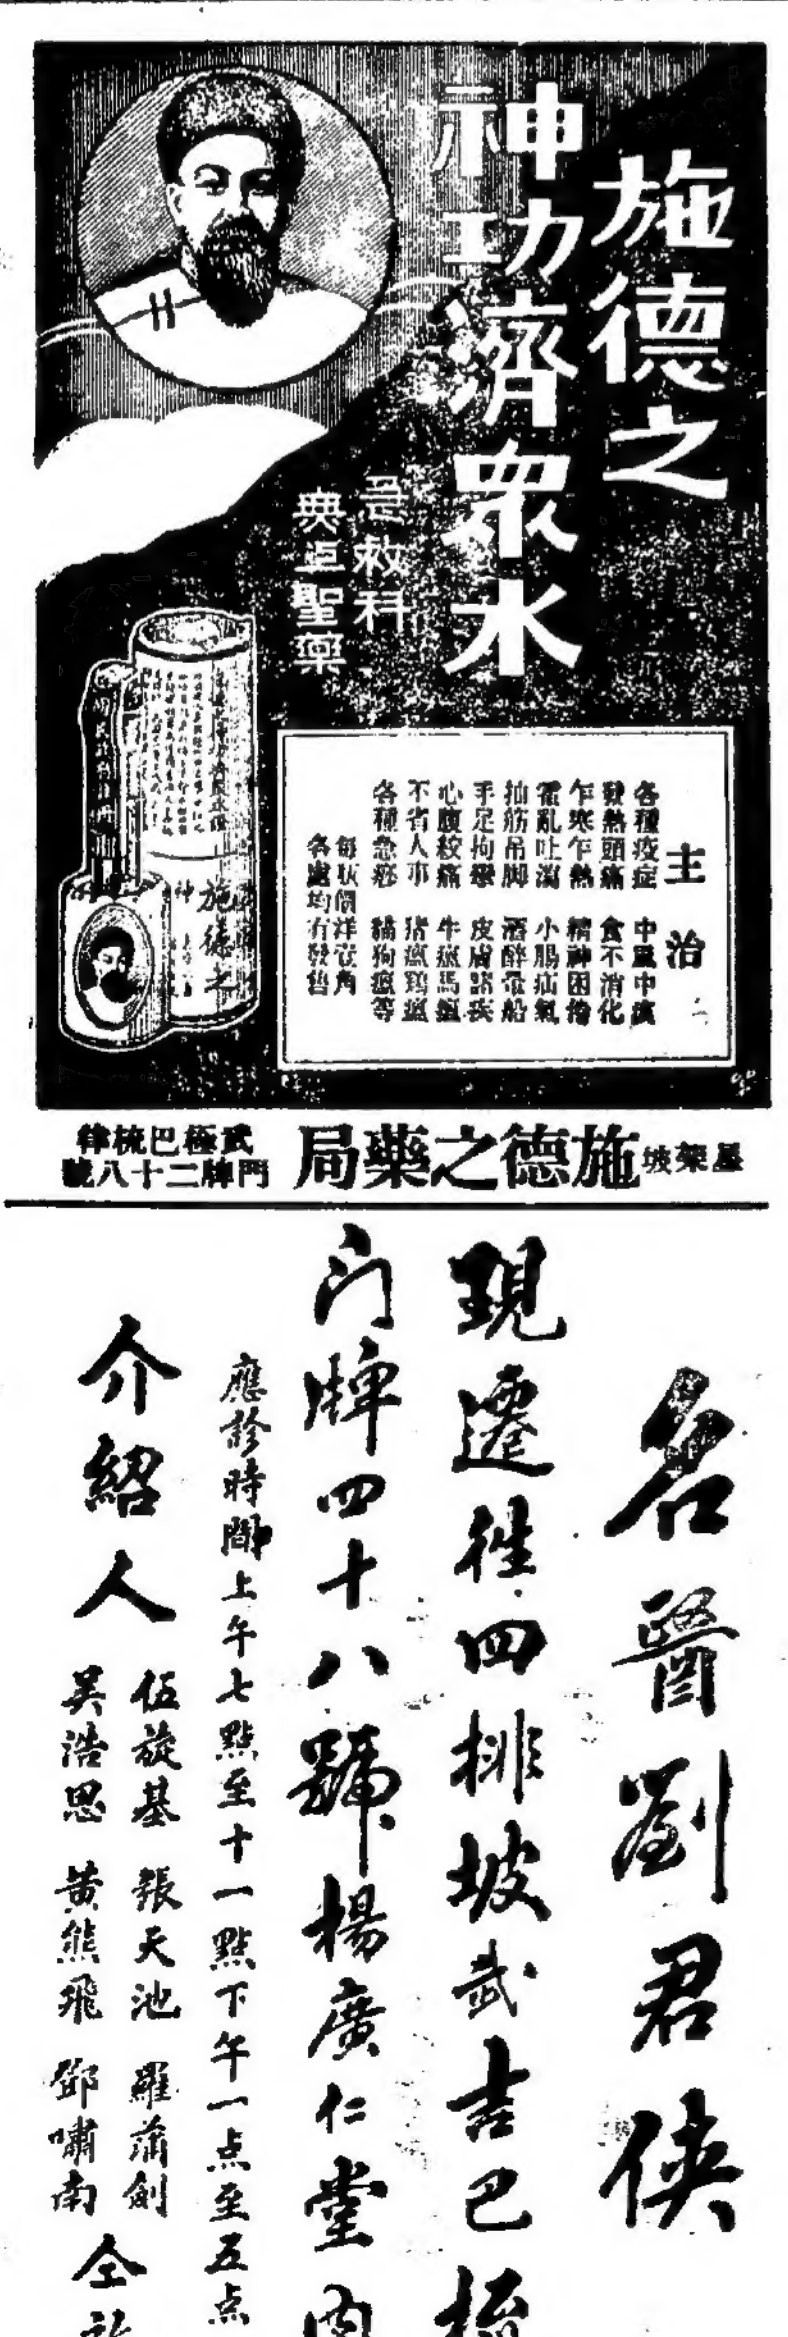 施德之
神功濟眾水
急救科
無上聖藥
主治
各種疫症 中風中痰
發熱頭痛 食不消化
乍寒乍熱 精神困倦
霍亂吐瀉 小腸疝氣
抽筋吊脚 酒醉暈船
手足拘攣 皮膚諸疾
心腹絞痛 牛瘟馬瘟
不省人事 猪瘟鷄瘟
各種急痧 貓狗瘟等
每瓶價洋壹角
各處均有發售
施德之
星架坡
施德之藥局
武極巴梳律
門牌二十八號
名醫劉君俠
現遷徃四排坡武吉巴梳
门牌四十八號楊廣仁堂內
應診時間上午七點至十一點下午一点至五点
介紹人
伍旋基 張天池 羅蒲劍
吳浩思 黃熊飛 鄧嘯南
仝